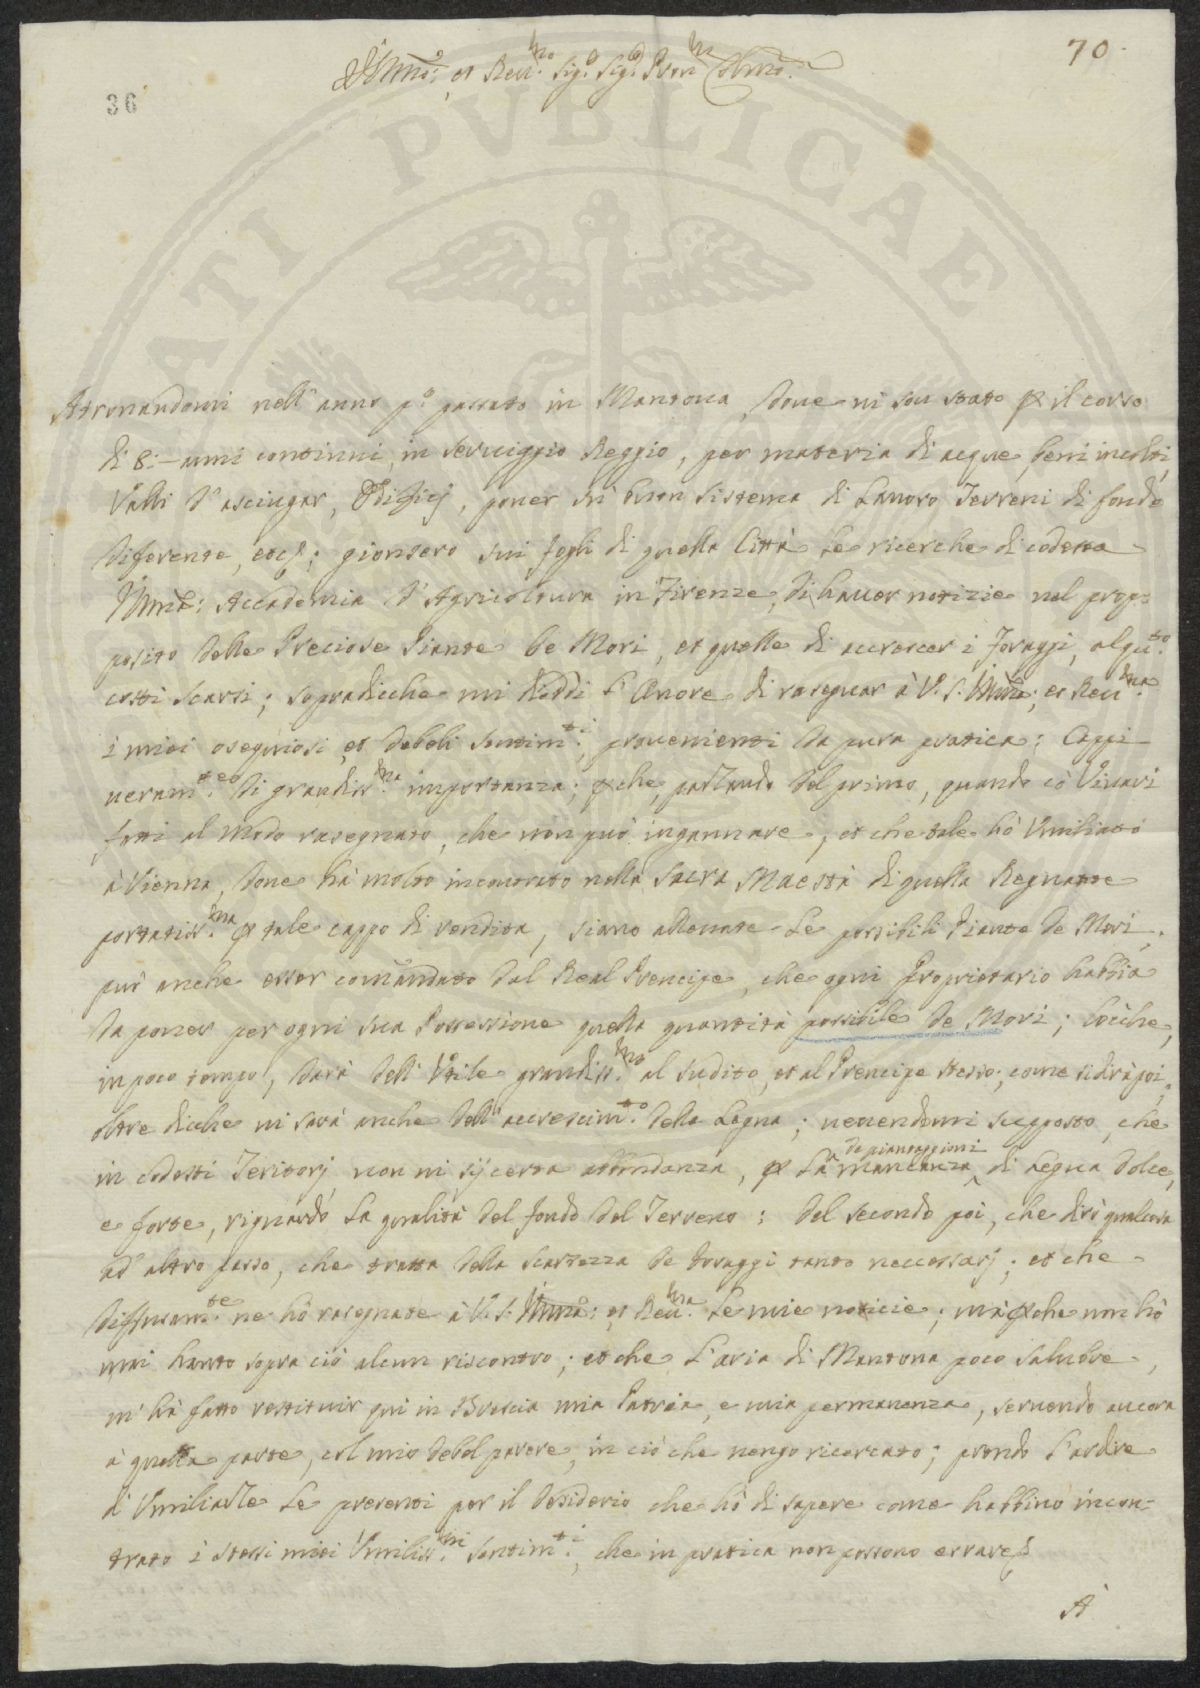 70.
Illmo: et Reu.mo Sig.e Sig.e Pron Colmo:
36
Atrouandomi nell'anno p.o passato in Mantoua, doue ui son stato p il corso
di 8:- anni continui, in seruiggio Reggio, per materia di acque, beni incolti,
Valli d'asciugar, Edificj, poner in buon sistema di Lauoro Terreni di fondo
diferente, etc.; gionsero sui fogli di quella Città Le ricerche di codesta
Illma: Accademia d'Agricoltura in Firenze, di hauer notizie nel prop=
posito delle Preciose Piante de Mori, et quelle di accrescer i Foraggi, alqu.to
costi scarsi; sopradicche mi diedi L'Onore di rasegnar à V.S. Illma: et Reu.ma
i miei osequiosi, et deboli sentim.ti, prouenienti da pura pratica: Cappi
ueram.te di grandiss.ma importanza; pche, parlando del primo, quando cò Viuari
fatti al modo rasegnato, che non può ingannare, et che tale hò Vmiliato
à Vienna, doue hà molto incontrato nella Sacra Maestà di quella Regnante
portatiss.ma p tale cappo di rendita, siano alleuate Le possibili Piante de Mori,
può anche esser comandato dal Real Prencipe, che ogni Proprietario habbia
da poner per ogni sua Possessione quella quantità possibile de Mori; cocche,
in poco tempo, darà dell'Vtile grandiss.mo al sudito, et al Prencipe stesso; come si dirà poi,
oltre dicche ui sarà anche dell'accrescim.to della Legna; uenendomi supposto, che
in codesti Teritorj non ui sij certa abbondanza, p La mancanza de piantaggioni di Legna dolce,
e forte, riguardo La qualità del fondo del Terreno: del secondo poi, che dirò qualcosa
ad altro passo, che tratta della scarsezza de foraggi tanto neccessarj; et che
diffusam.te ne hò rasegnate à V.S. Illma: et Reu.ma Le mie noticie; mà pche non hò
mai hauto sopra ciò alcun riscontro; et che L'aria di Mantoua poco salubre,
m'hà fatto restituir qui in Brescia mia Patria, e mia permanenza, seruendo ancora
à quella parte, col mio debol parere, in ciò che uengo ricercato; prendo L'ardire
d'Vmiliarle Le presenti per il desiderio che hò di sapere come habbino incon=
trato i stessi miei Vmiliss.mi sentim.ti, che in pratica non possono errare;
A